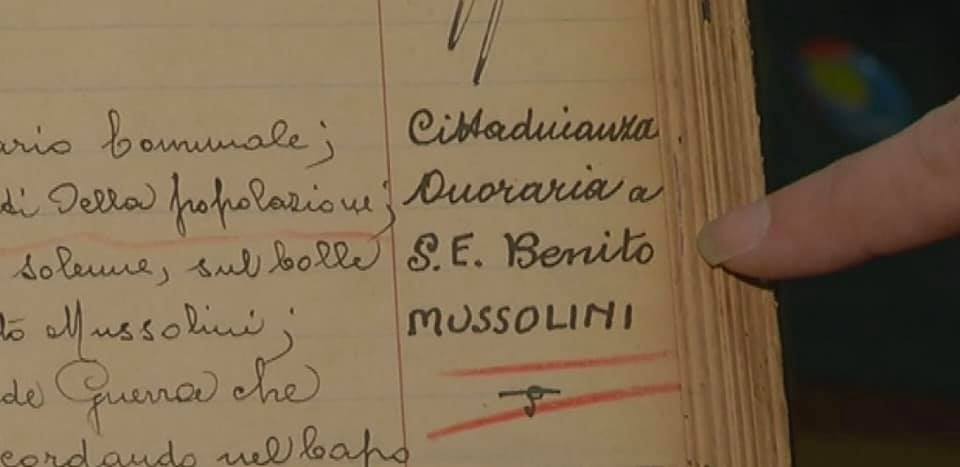 ario Comunale;
di della popolazione;
solenne, sul bolle
Mussolini;
de Guerra che
cordando nel Capo
Cittadinanza
Onoraria a
S.E. Benito
MUSSOLINI